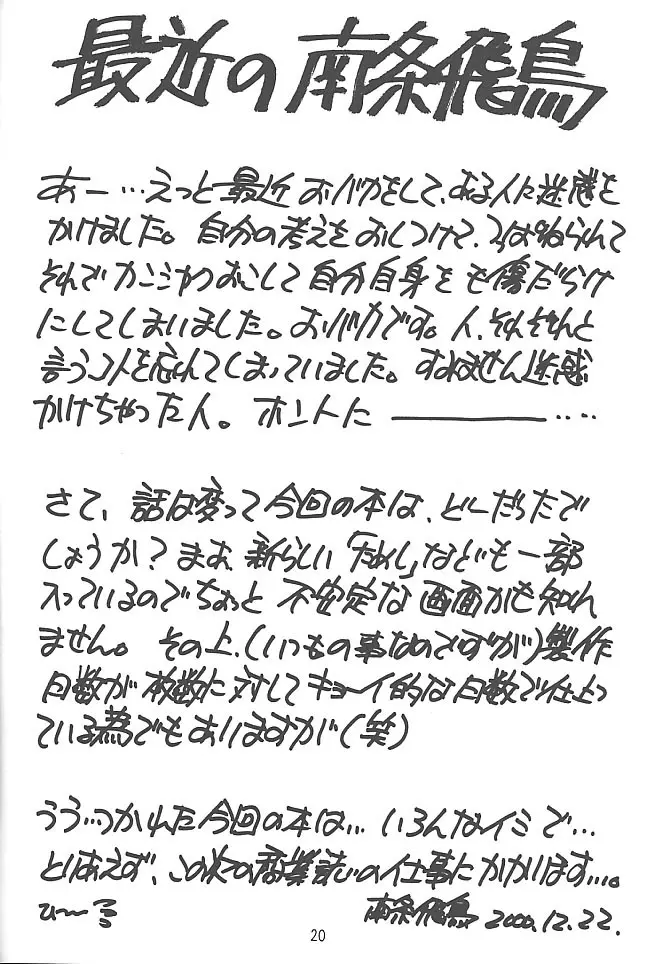 最近の南条飛鳥
あー…えっと最近おバカをして、ある人に迷惑を
かけました。自分の考えをおしつけて、つっぱねられて
それでカンシャクおこして自分自身をも傷だらけ
にしてしまいました。おバカです。人、それぞれと
言うコトを忘れてしまっていました。すみません迷惑
かけちゃった人。ホントに――――‥‥
さて、話は変って今回の本は、どーだったで
しょうか？まあ、新らしい「ためし」なども一部
入っているのでちょっと不安定な画面かも知れ
ません。その上、(いつもの事なのですが)製作
日数が枚数に対してキョーイ的な日数で仕上っ
ている為でもありますが(笑)
うう…つかれた今回の本は…いろんなイミで…
とりあえず、この次の商業誌の仕事にかかります…。
ひ〜る
南条飛鳥 2000.12.22.
20